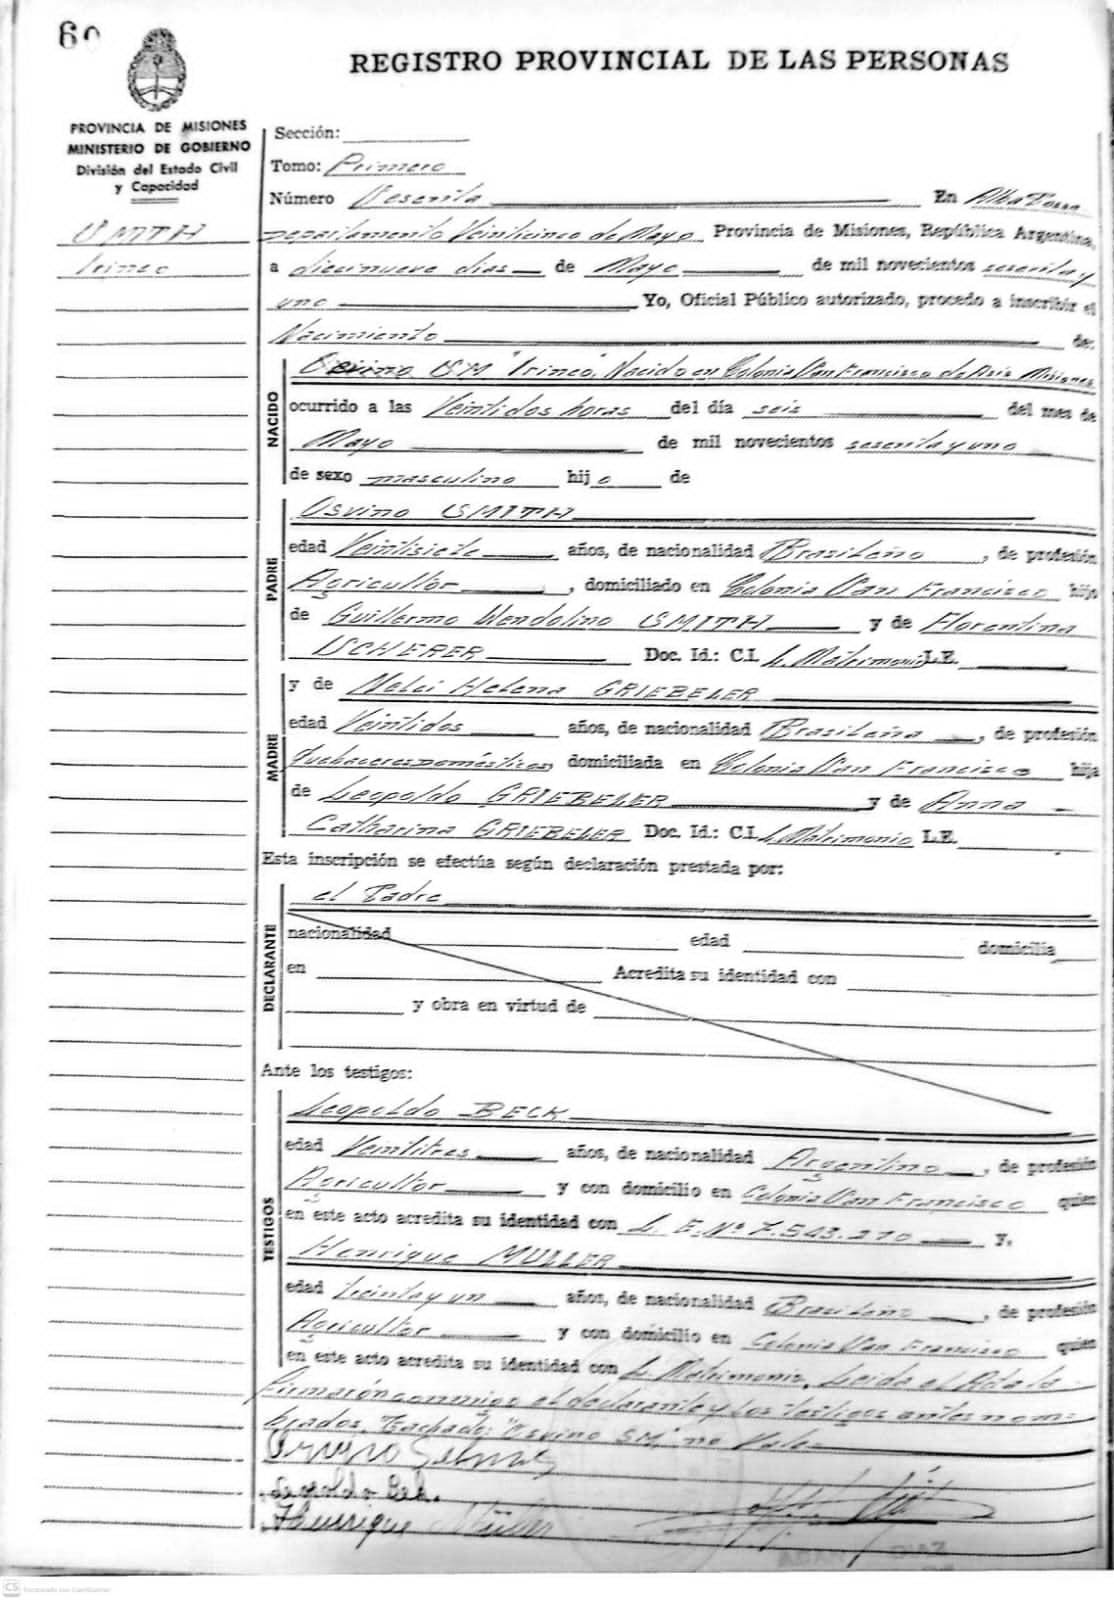 60
REGISTRO PROVINCIAL DE LAS PERSONAS
PROVINCIA DE MISIONES
MINISTERIO DE GOBIERNO
División del Estado Civil
y Capacidad
SMITH
Irineo
Sección:
Tomo: Primero
Número Sesenta En Alba Posse
Departamento Veinticinco de Mayo Provincia de Misiones, República Argentina,
a diecinueve dias de Mayo de mil novecientos sesenta y
uno Yo, Oficial Público autorizado, procedo a inscribir el
Nacimiento de:
NACIDO
Osvino SM "Irineo", Nacido en Colonia San Francisco de Asis Misiones
ocurrido a las Veintidos horas del día seis del mes de
Mayo de mil novecientos sesenta y uno
de sexo masculino hijo de
PADRE
Osvino SMITH
edad Veintisiete años, de nacionalidad Brasileño, de profesión
Agricultor, domiciliado en Colonia San Francisco hijo
de Guillermo Wendolino SMITH y de Florentina
SCHERER Doc. Id.: C.I. L. Matrimonio L.E.
MADRE
y de Nelci Helena GRIEBELER
edad Veintidos años, de nacionalidad Brasileña, de profesión
Quehaceres Domésticos, domiciliada en Colonia San Francisco hija
de Leopoldo GRIEBELER y de Anna
Catharina GRIEBELER Doc. Id.: C.I. L. Matrimonio L.E.
Esta inscripción se efectúa según declaración prestada por:
DECLARANTE
el Padre
nacionalidad edad domicilia
en Acredita su identidad con
y obra en virtud de
Ante los testigos:
TESTIGOS
Leopoldo BECK
edad Veintitres años, de nacionalidad Argentino, de profesión
Agricultor y con domicilio en Colonia San Francisco quien
en este acto acredita su identidad con L. E. Nº 7.543.270 y.
Henrique MULLER
edad treinta y un años, de nacionalidad Brasileño, de profesión
Agricultor y con domicilio en Colonia San Francisco quien
en este acto acredita su identidad con L. Matrimonio. Leida el Acta la
Firmarón conmigo el declarante y los testigos antes nom=
brados. Tachado: "Osvino SM" no Vale=
Leopoldo Bek.
Henrique Müller
DIAZ
CS Escaneado con CamScanner